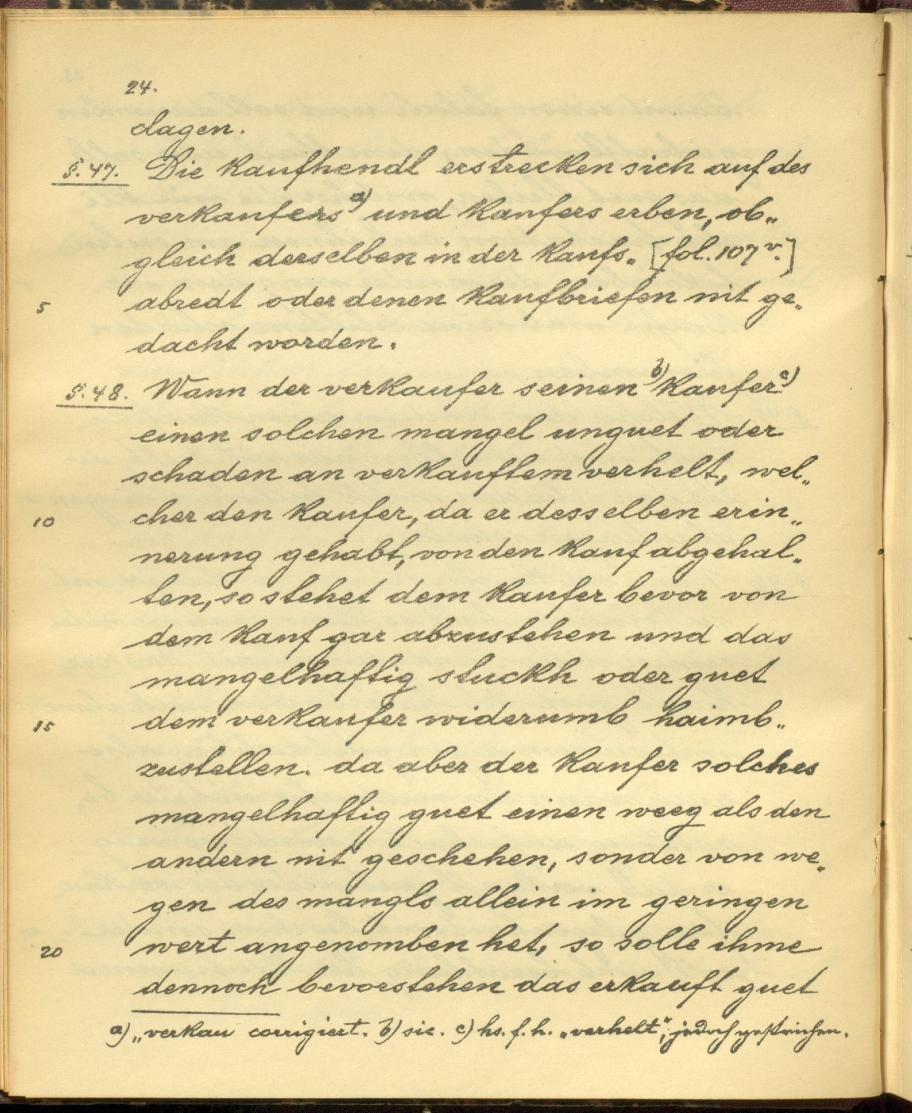 24.
clagen.
§. 47. Die kaufhendl erstrecken sich auf des
verkaufers a) und kaufers erben, ob„
gleich derselben in der kaufs„ [fol. 107 v.]
5 abredt oder denen kaufbriefen nit ge„
dacht worden.
§. 48. Wann der verkaufer seinen b) kaufer c)
einen solchen mangel unguet oder
schaden an verkauftem verhelt, wel„
10 cher den kaufer, da er desselben erin„
nerung gehabt, von den kauf abgehal„
ten, so stehet dem kaufer bevor von
dem kauf gar abzustehen und das
mangelhaftig stuckh oder guet
15 dem verkaufer widerumb haimb„
zustellen. da aber der kaufer solches
mangelhaftig guet einen weeg als den
andern nit geschehen, sonder von we„
gen des mangls allein im geringen
20 wert angenomben het, so solle ihme
dennoch bevorstehen das erkauft guet
a) „verkau corrigiert. b) sic. c) hs. f. h. „verhelt“, jedoch gestrichen.